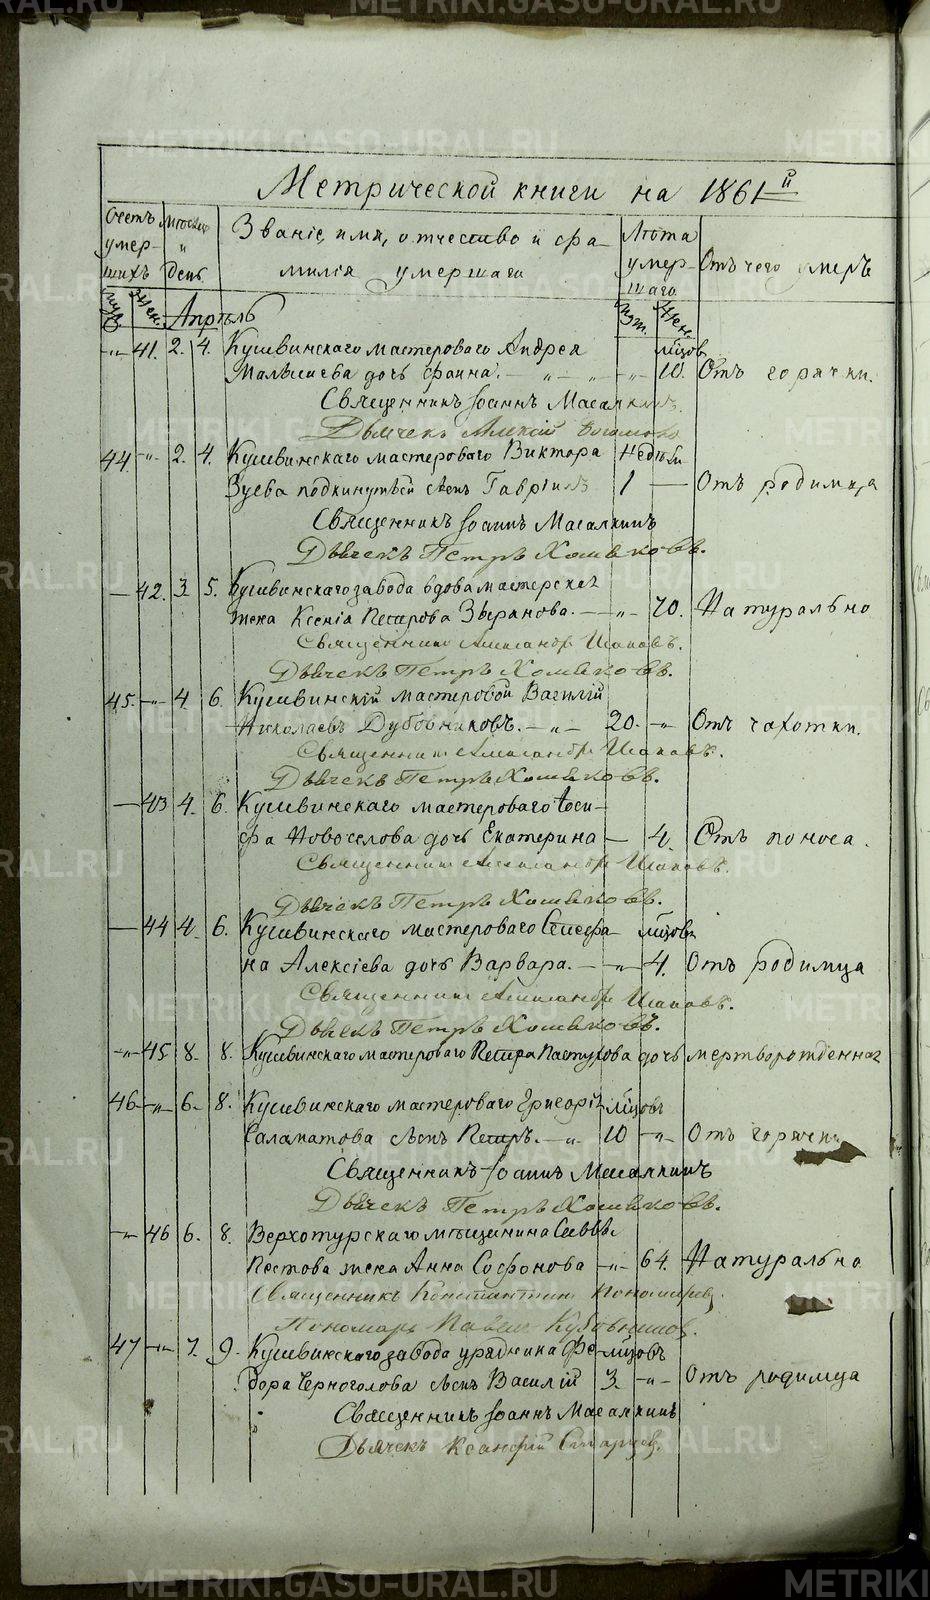 METRIKI.GASO-URAL.RU
Метрической книги на 1861й
Счетъ умер-шихъ
Мѣсяцъ и день
Званіе, имя, отчество и фа-
милія умершаго
Лѣта умер-шаго
Отъ чего умеръ
муж. жен. Апрѣль муж. жен.
-„- 41. 2. 4. Кушвинскаго мастероваго Андрея мѣсцов
Малышева дочь Фаина. — „ — „ -„- 10. Отъ горячки.
Священникъ Іоаннъ Масалкинъ.
Дьячекъ Алексій
44. -„- 2. 4. Кушвинскаго мастероваго Виктора недѣли
Зуева подкинутый сынъ Гавріилъ 1 — Отъ родимца
Священникъ Іоаннъ Масалкинъ
Дьячекъ Петръ Хомяковъ.
— 42. 3. 5. Кушвинскаго завода вдова мастерска
жена Ксенія Петрова Зырянова. — -„- 70. Натурально
Священникъ Александръ Ишаковъ.
Дьячекъ Петръ Хомяковъ.
45. -„- 4. 6. Кушвинскій мастеровой Василій
Николаевъ Дубовниковъ. — „ — 20. -„- Отъ чахотки.
Священникъ Александръ Ишаковъ.
Дьячекъ Петръ Хомяковъ.
— 43 4. 6. Кушвинскаго мастероваго Іоси-
фа Новоселова дочь Екатерина — 4. Отъ поноса.
Священникъ Александръ Ишаковъ.
Дьячекъ Петръ Хомяковъ.
— 44 4. 6. Кушвинскаго мастероваго Стефа- мѣсцов
на Алексіева дочь Варвара. — -„- 4. Отъ родимца
Священникъ Александръ Ишаковъ.
Дьячекъ Петръ Хомяковъ.
-„- 45 8. 8. Кушвинскаго мастероваго Петра Пастухова дочь мертворожденная
46 -„- 6. 8. Кушвинскаго мастероваго Григорія мѣсцовъ
Саламатова сынъ Петръ. — „ 10 -„- Отъ горячки
Священникъ Іоаннъ Масалкинъ
Дьячекъ Петръ Хомяковъ.
-„- 46 6. 8. Верхотурскаго мѣщанина
Пестова жена Анна Софонова -„- 64. Натурально
Священникъ Константинъ Пономаревъ.
Пономарь Павелъ
47 -„- 7. 9. Кушвинскаго завода урядника Фе- мѣсцовъ
дора Черноголова сынъ Василій 3. -„- Отъ родимца
Священникъ Іоаннъ Масалкинъ
Дьячекъ Ксанфій Старцевъ.